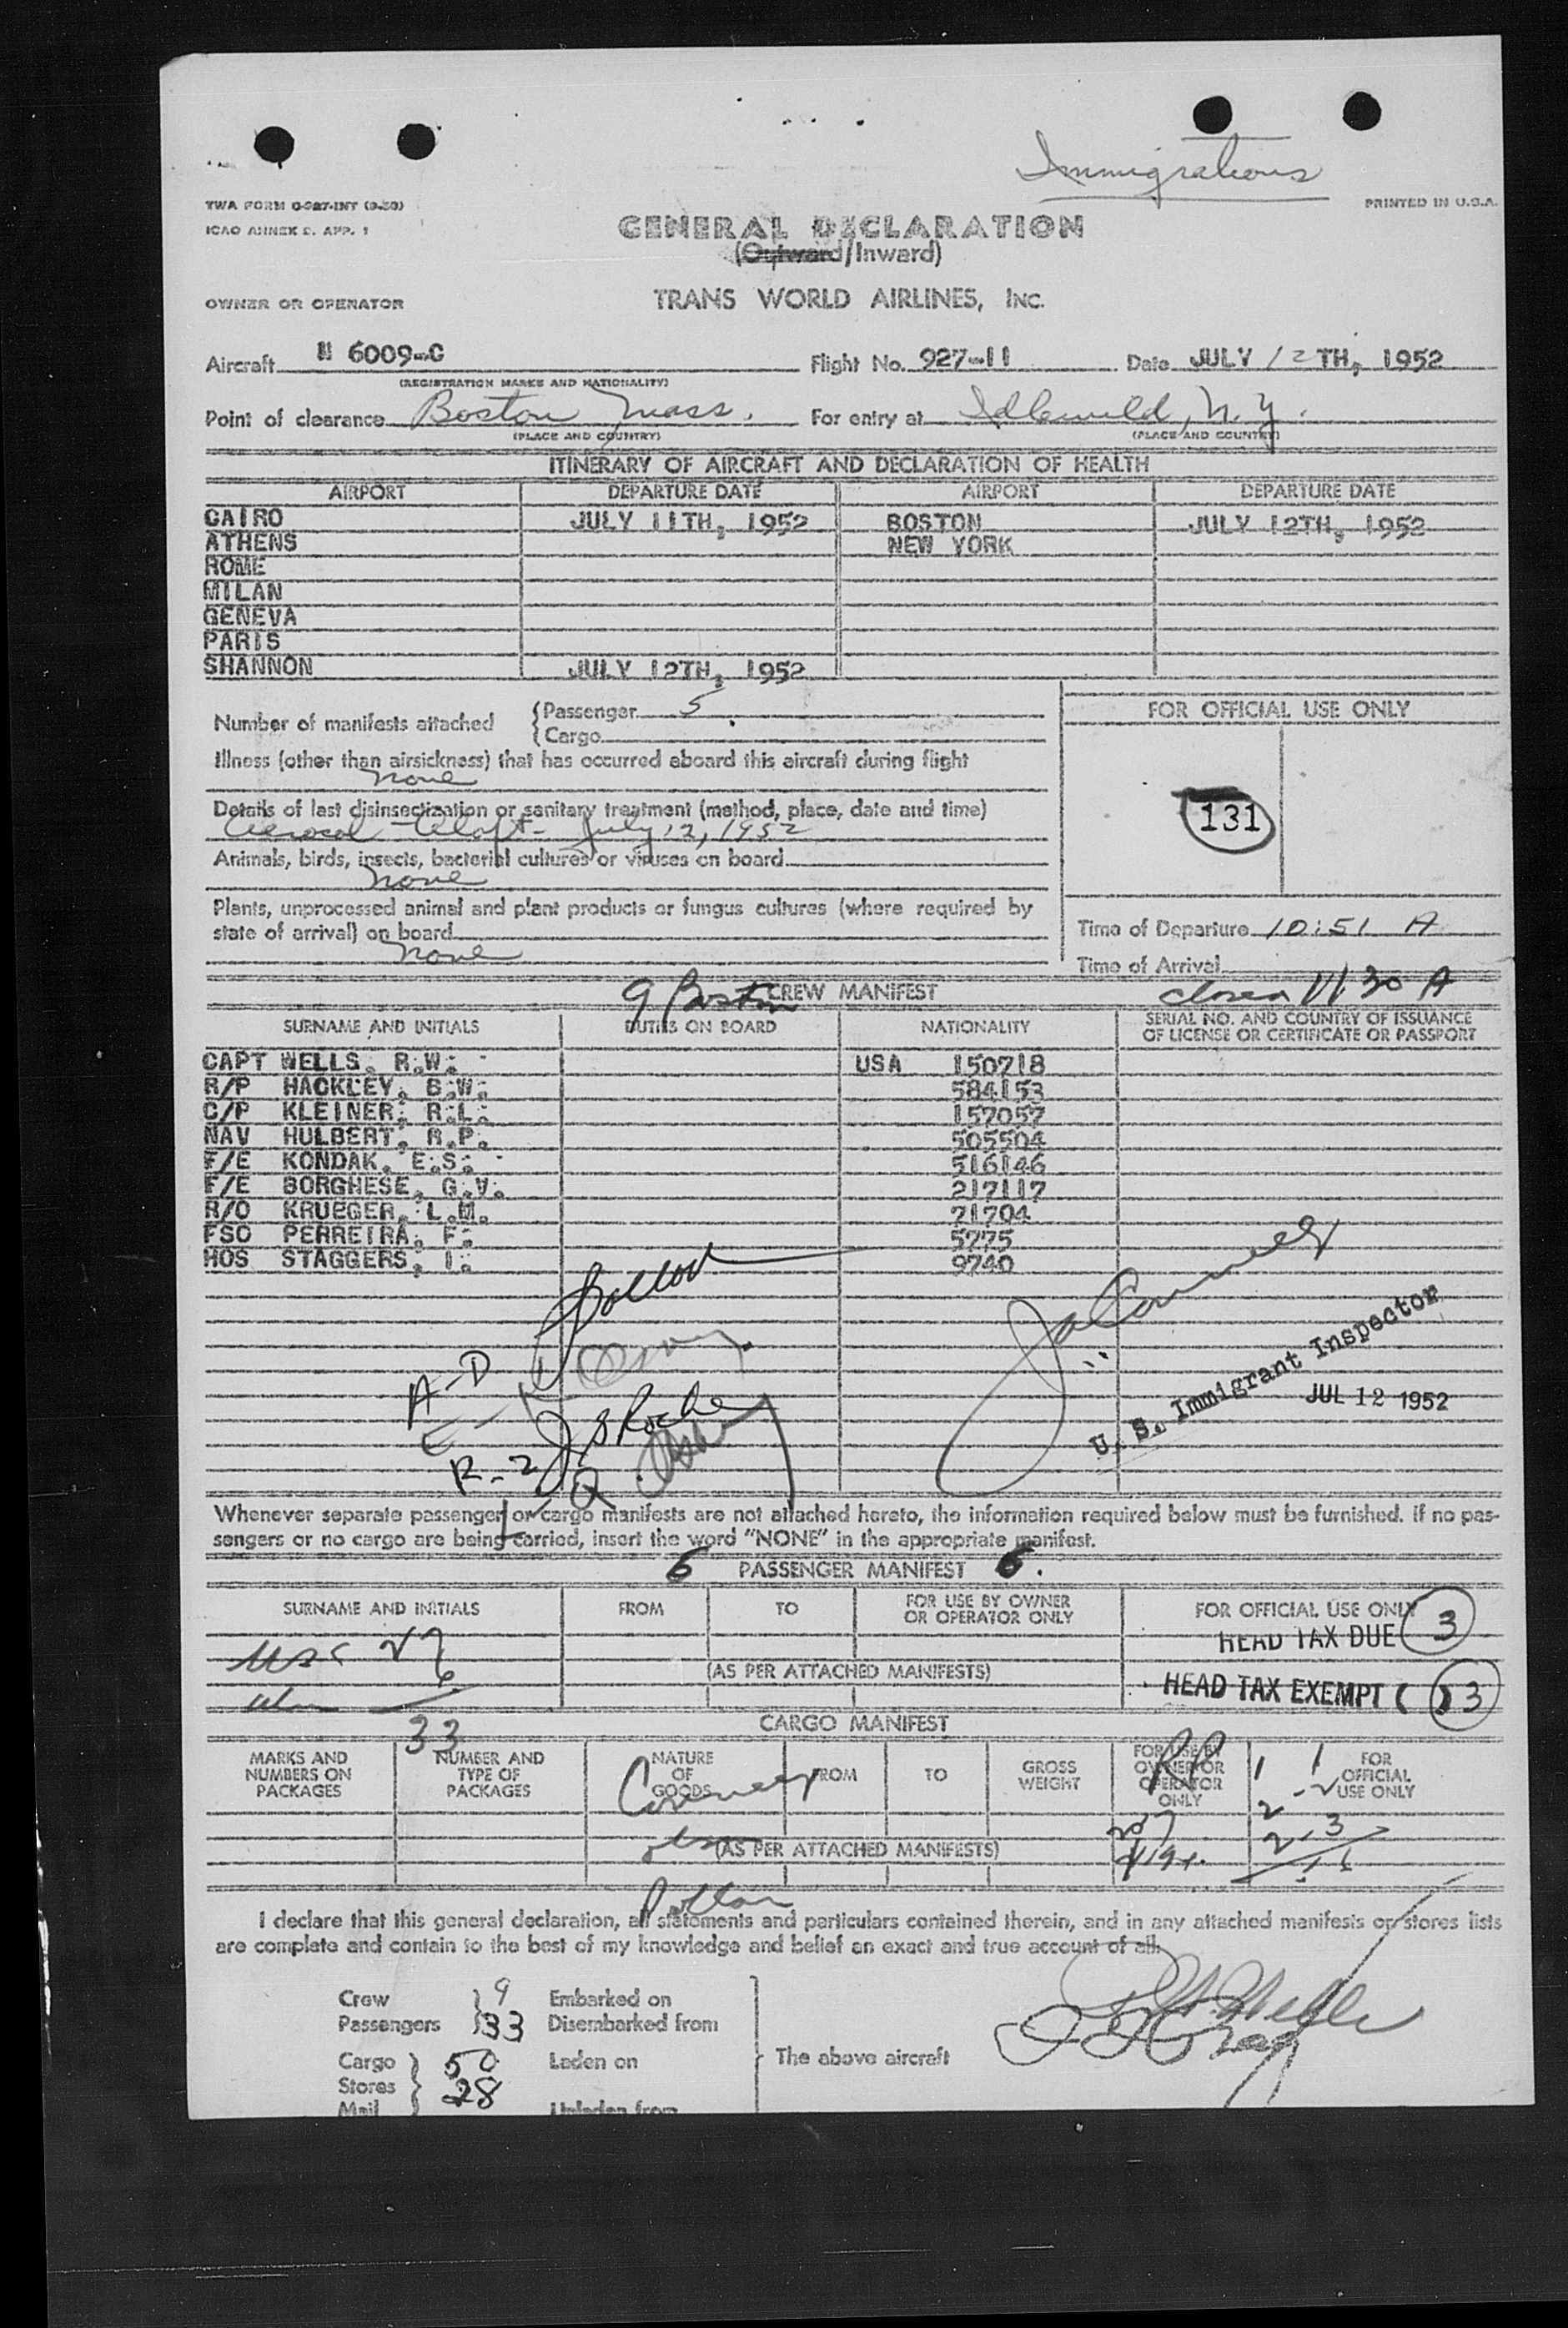 Immigrations
TWA FORM O-927-INT (9-50)
PRINTED IN U.S.A.
ICAO ANNEX 9. APP. 1
GENERAL DECLARATION
(Outward/Inward)
OWNER OR OPERATOR TRANS WORLD AIRLINES, INC.
Aircraft N 6009-C Flight No. 927-11 Date JULY 12TH, 1952
(REGISTRATION MARKS AND NATIONALITY)
Point of clearance Boston Mass. For entry at Idlewild, N.Y.
(PLACE AND COUNTRY) (PLACE AND COUNTRY)
ITINERARY OF AIRCRAFT AND DECLARATION OF HEALTH
AIRPORT DEPARTURE DATE AIRPORT DEPARTURE DATE
CAIRO JULY 11TH, 1952 BOSTON JULY 12TH, 1952
ATHENS NEW YORK
ROME
MILAN
GENEVA
PARIS
SHANNON JULY 12TH, 1952
Number of manifests attached
Passenger 5
Cargo
FOR OFFICIAL USE ONLY
131
Illness (other than airsickness) that has occurred aboard this aircraft during flight
None
Details of last disinsectization or sanitary treatment (method, place, date and time)
Aerosol - Aloft - July 12, 1952
Animals, birds, insects, bacterial cultures or viruses on board
None
Plants, unprocessed animal and plant products or fungus cultures (where required by
state of arrival) on board
None
Time of Departure 10:51 A
Time of Arrival
9 Boston CREW MANIFEST 11 30 A
SURNAME AND INITIALS DUTIES ON BOARD NATIONALITY SERIAL NO. AND COUNTRY OF ISSUANCE
OF LICENSE OR CERTIFICATE OR PASSPORT
CAPT WELLS, R.W. USA 150718
R/P HACKLEY, B.W. 584153
C/P KLEINER, R.L. 157057
NAV HULBERT, R.P. 505504
F/E KONDAK, E.S. 516146
F/E BORGHESE, G.V. 217117
R/O KRUEGER, L.M. 71704
FSO PERREIRA, F. 5775
HOS STAGGERS, I. 9740
A-D
R-2 Roche
U. S. Immigrant Inspector
JUL 12 1952
Whenever separate passenger or cargo manifests are not attached hereto, the information required below must be furnished. If no pas-
sengers or no cargo are being carried, insert the word "NONE" in the appropriate manifest.
6 PASSENGER MANIFEST 6.
SURNAME AND INITIALS FROM TO FOR USE BY OWNER
OR OPERATOR ONLY
FOR OFFICIAL USE ONLY
HEAD TAX DUE 3
(AS PER ATTACHED MANIFESTS)
HEAD TAX EXEMPT ( ) 3
33
CARGO MANIFEST
MARKS AND
NUMBERS ON
PACKAGES
NUMBER AND
TYPE OF
PACKAGES
NATURE
OF
GOODS
FROM
TO
GROSS
WEIGHT
FOR USE BY
OWNER OR
OPERATOR
ONLY
FOR
OFFICIAL
USE ONLY
(AS PER ATTACHED MANIFESTS)
I declare that this general declaration, all statements and particulars contained therein, and in any attached manifests or stores lists
are complete and contain to the best of my knowledge and belief an exact and true account of all:
Crew 9 Embarked on
Passengers 33 Disembarked from
Cargo 50 Laden on
The above aircraft
Stores 28
Mail Unladen from